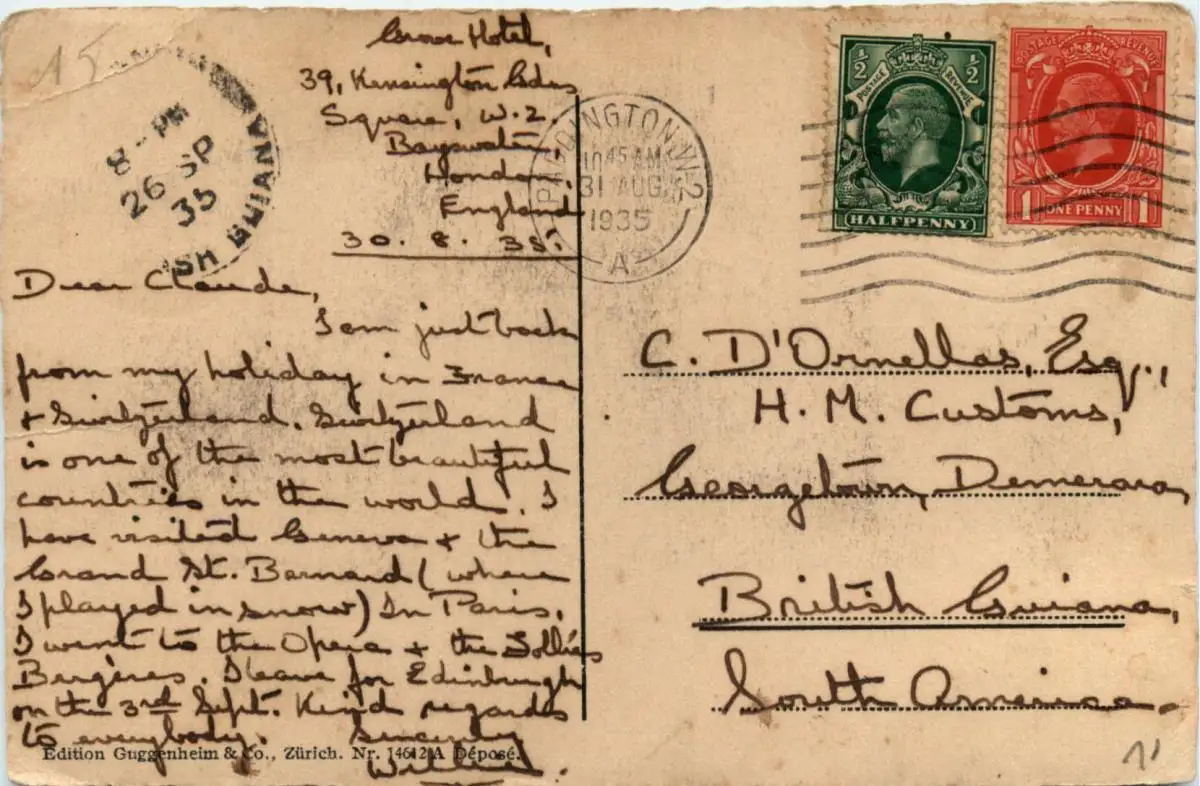 Grove Hotel,
39, Kensington Gdns
Square, W.2.
Bayswater,
London,
England
30. 8. 35.
Dear Claude,
I am just back
from my holiday in France
& Switzerland. Switzerland
is one of the most beautiful
countries in the world. I
have visited Geneva & the
Grand St. Bernard (where
I played in snow) In Paris,
I went to the Opera & the Follies
Bergères. I leave for Edinburgh
on the 3rd Sept. Kind regards
to everybody. Sincerely
Willie.
Edition Guggenheim & Co., Zürich. Nr. 14612 A Déposé.
8 - PM
26 SP
35
ISH GUIANA
PADDINGTON. W.2
10 45 AM
31 AUG
1935
A
½ ½
POSTAGE REVENUE
HALFPENNY
POSTAGE REVENUE
1 ONE PENNY 1
C. D'Ornellas, Esq.,
H. M. Customs,
Georgetown, Demerara,
British Guiana,
South America.